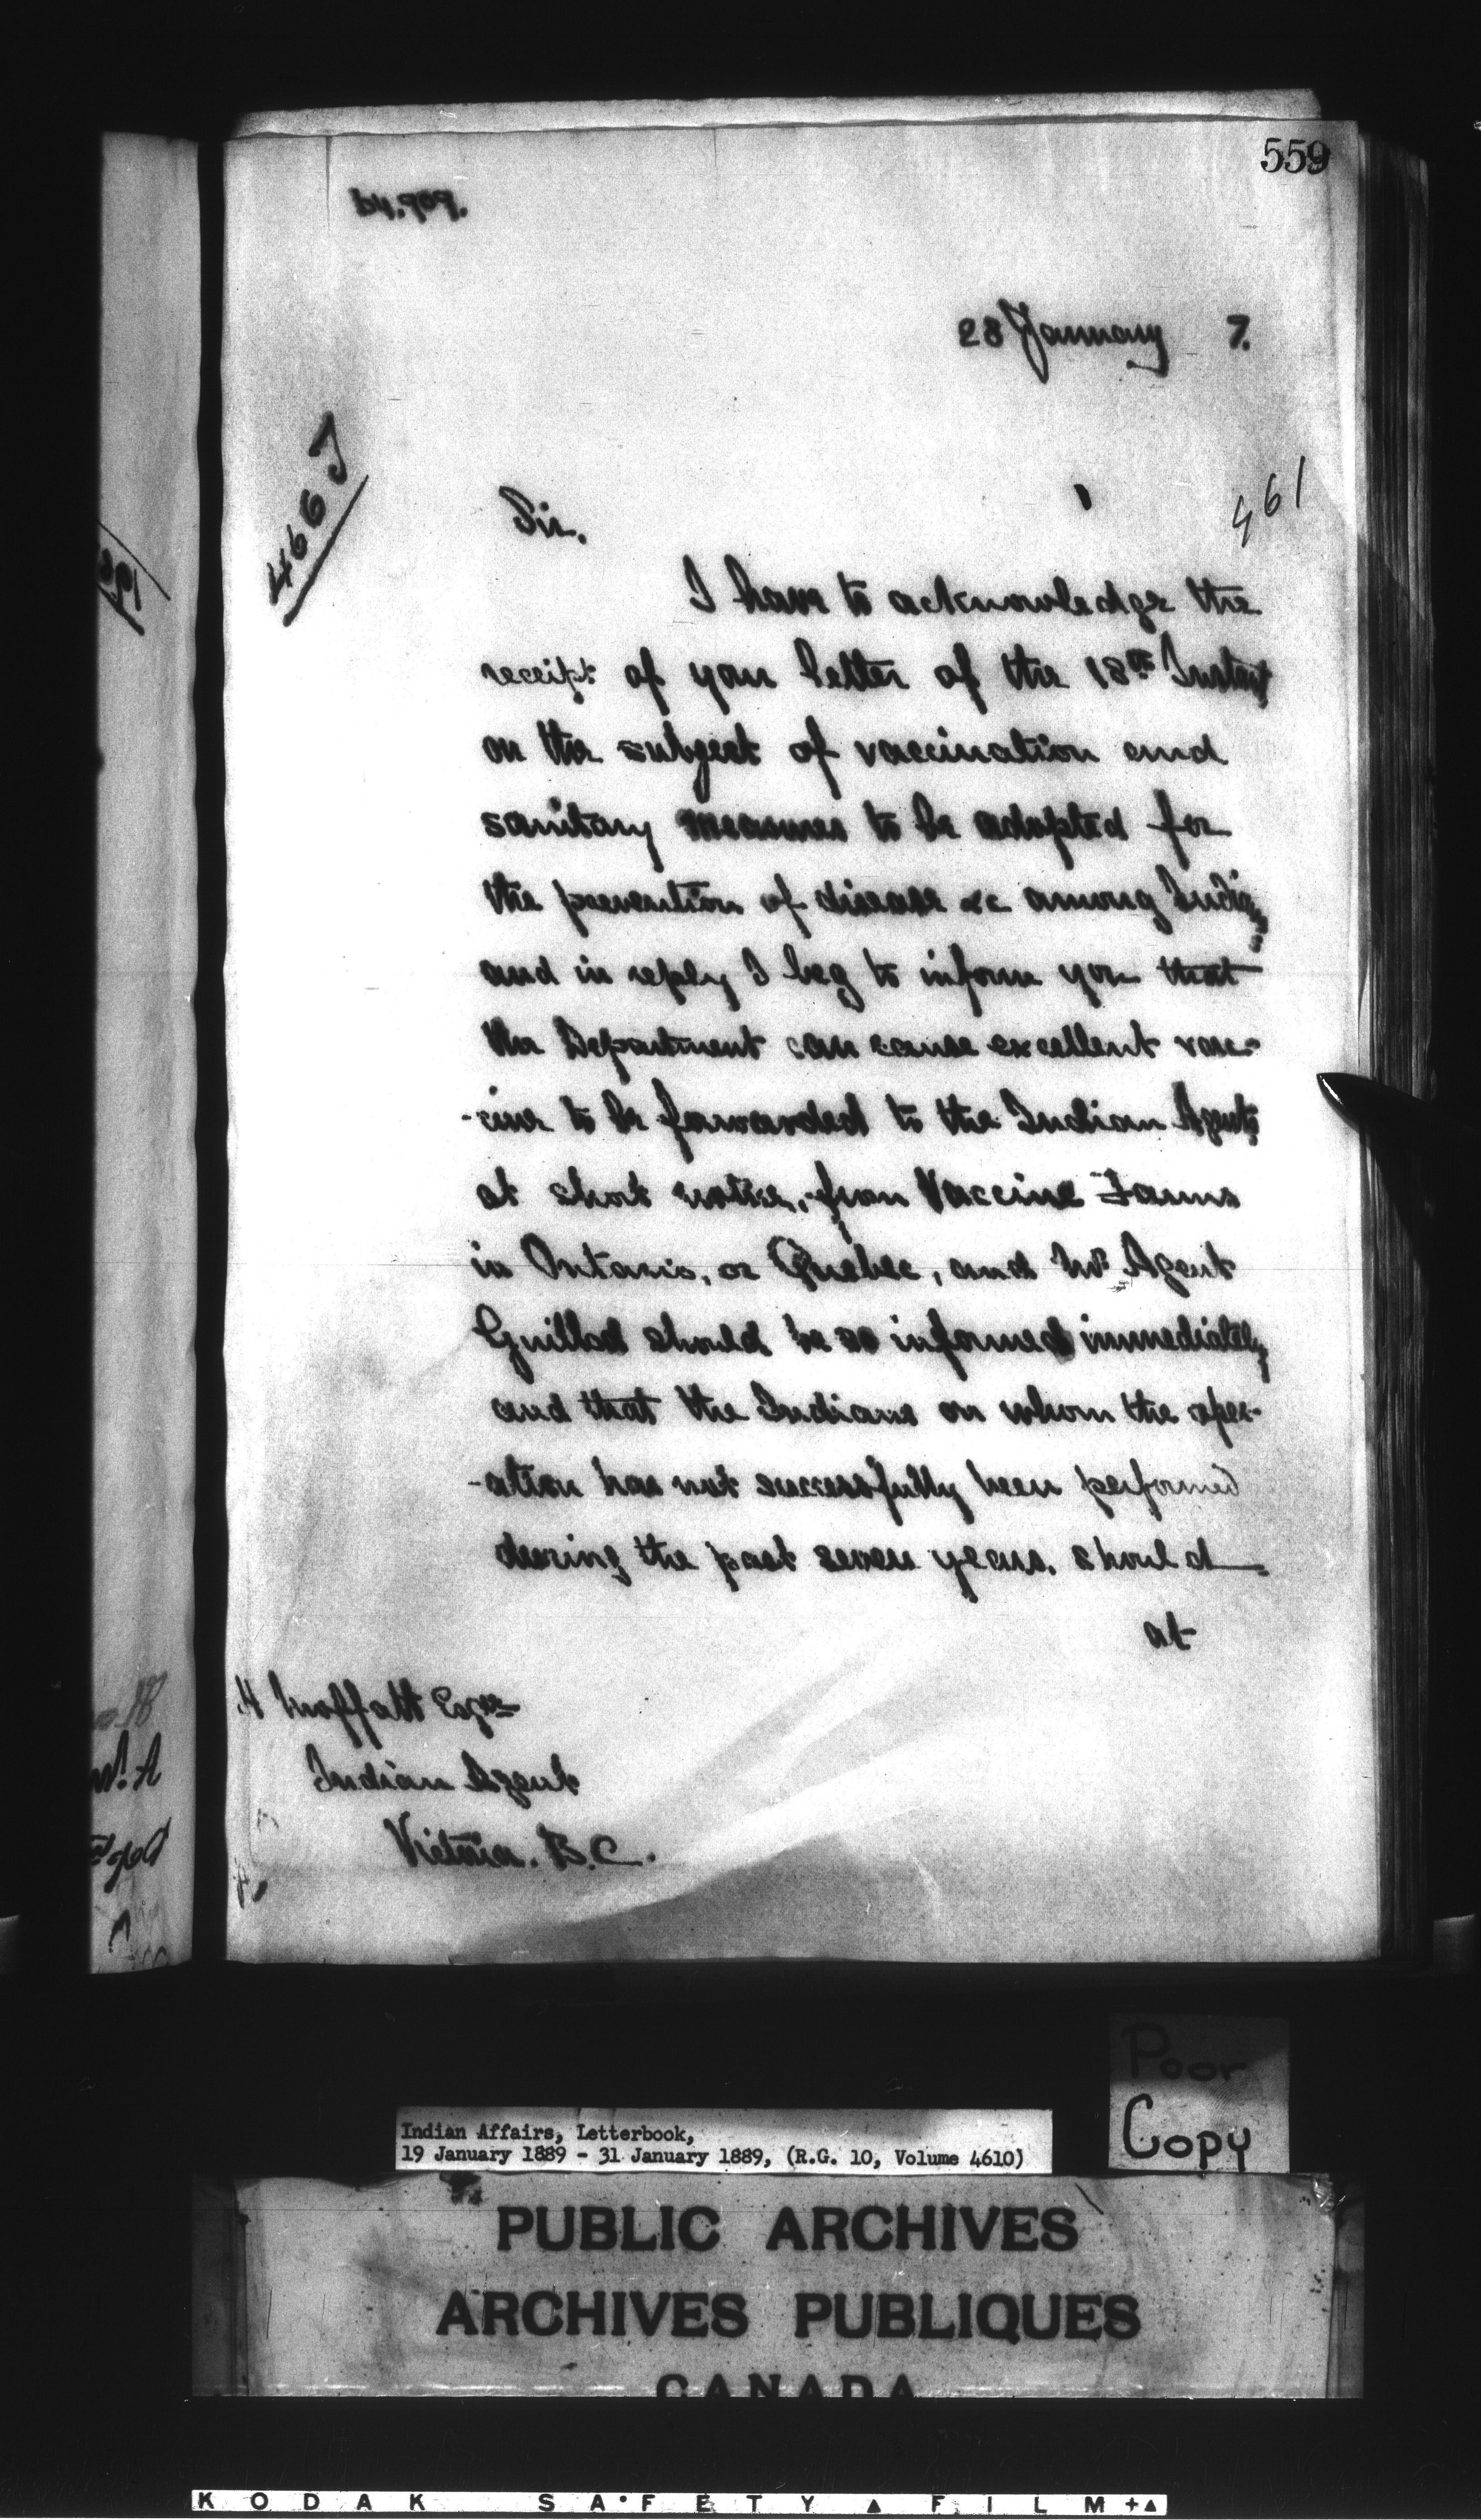 559
64.909.
28 January 9.
466 J
461
Sir,
I have to acknowledge the
receipt of your letter of the 18th Instant
on the subject of vaccination and
sanitary measures to be adopted for
the prevention of disease &c among Indians
and in reply I beg to inform you that
the Department can cause excellent vac-
-cine to be forwarded to the Indian Agents
at short notice, from Vaccine Farms
in Ontario, or Quebec, and Mr Agent
Guillod should be so informed immediately
and that the Indians on whom the oper-
-ation has not successfully been performed
during the past seven years, should
at
H Moffatt Esqre
Indian Agent
Victoria. B.C.
Poor
Copy
Indian Affairs, Letterbook,
19 January 1889 - 31 January 1889, (R.G. 10, Volume 4610)
PUBLIC ARCHIVES
ARCHIVES PUBLIQUES
CANADA
KODAK SAFETY FILM